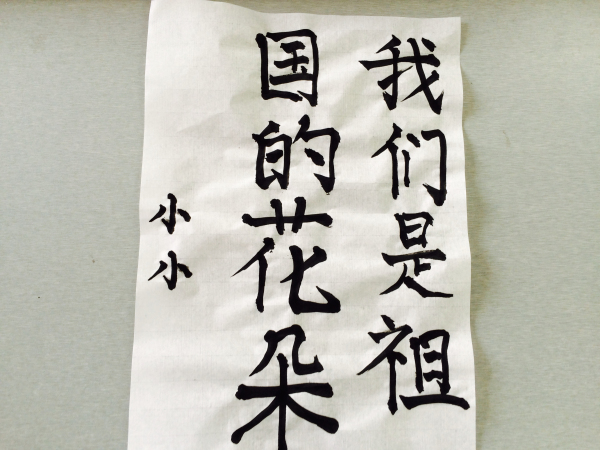 我们是祖
国的花朵
小小